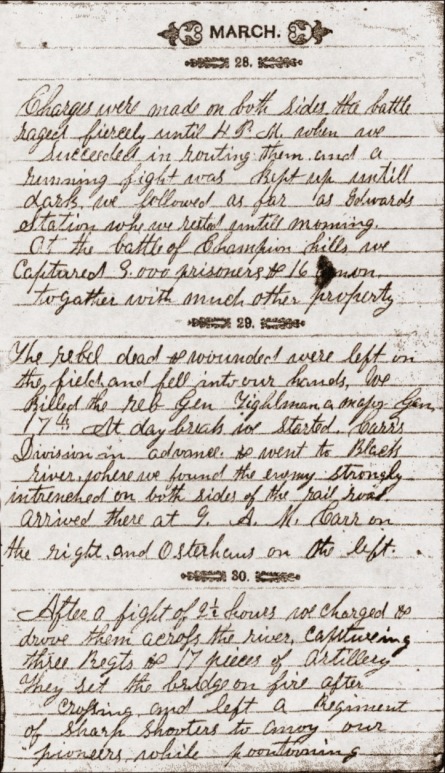 MARCH.
28.
Charges were made on both sides, the battle
raged fiercely until 4 P.M. when we
succeeded in routing them, and a
running fight was kept up untill
dark, we followed as far as Edwards
Station whe we rested untill morning.
At the battle of Champion hills we
Captured 3.000 prisoners & 16 canon
togather with much other property
29.
The rebel dead & wounded were left on
the field, and fell into our hands, We
killed the reb Gen Tighlman a major Gen,
17th At day break we started. Carr's
Division in advance & went to Black
river, where we found the enemy strongly
intrenched on both sides of the rail road
arrived there at 9. A. M. Carr on
the right, and Osterhaus on the left.
30.
After a fight of 2½ hours we charged &
drove them across the river, captureing
three Regts & 17 pieces of artillery
They set the bridge on fire after
crossing and left a regiment
of sharp shooters to anoy our
pioneers, while poontooning